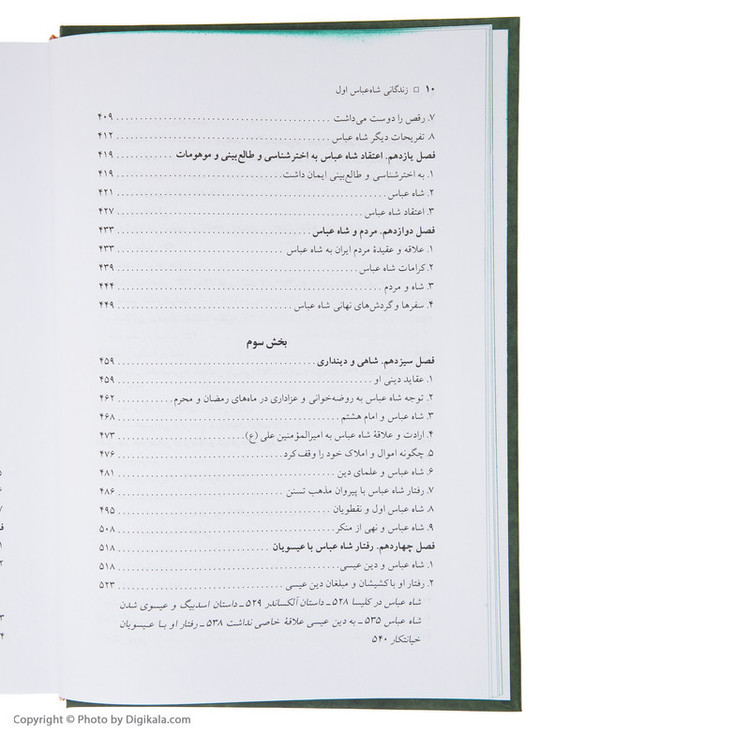 ۱۰ □ زندگانی شاه‌عباس اول
۷. رقص را دوست می‌داشت ........ ۴۰۹
۸. تفریحات دیگر شاه عباس ........ ۴۱۲
فصل یازدهم. اعتقاد شاه عباس به اخترشناسی و طالع‌بینی و موهومات ........ ۴۱۹
۱. به اخترشناسی و طالع‌بینی ایمان داشت ........ ۴۱۹
۲. شاه عباس ........ ۴۲۱
۳. اعتقاد شاه عباس ........ ۴۲۷
فصل دوازدهم. مردم و شاه عباس ........ ۴۳۳
۱. علاقه و عقیدهٔ مردم ایران به شاه عباس ........ ۴۳۳
۲. کرامات شاه عباس ........ ۴۳۹
۳. شاه و مردم ........ ۴۴۴
۴. سفرها و گردش‌های نهانی شاه عباس ........ ۴۴۹
بخش سوم
فصل سیزدهم. شاهی و دینداری ........ ۴۵۹
۱. عقاید دینی او ........ ۴۵۹
۲. توجه شاه عباس به روضه‌خوانی و عزاداری در ماه‌های رمضان و محرم ........ ۴۶۲
۳. شاه عباس و امام هشتم ........ ۴۶۸
۴. ارادت و علاقهٔ شاه عباس به امیرالمؤمنین علی (ع) ........ ۴۷۳
۵. چگونه اموال و املاک خود را وقف کرد ........ ۴۷۶
۶. شاه عباس و علمای دین ........ ۴۸۱
۷. رفتار شاه عباس با پیروان مذهب تسنن ........ ۴۸۶
۸. شاه عباس اول و نقطویان ........ ۴۹۵
۹. شاه عباس و نهی از منکر ........ ۵۰۸
فصل چهاردهم. رفتار شاه عباس با عیسویان ........ ۵۱۸
۱. شاه عباس و دین عیسی ........ ۵۱۸
۲. رفتار او با کشیشان و مبلغان دین عیسی ........ ۵۲۳
شاه عباس در کلیسا ۵۲۸ ـ داستان آلکساندر ۵۲۹ ـ داستان اسدبیگ و عیسوی شدن
شاه عباس ۵۳۵ ـ به دین عیسی علاقهٔ خاصی نداشت ۵۳۸ ـ رفتار او با عیسویان
خیانتکار ۵۴۰
Copyright © Photo by Digikala.com